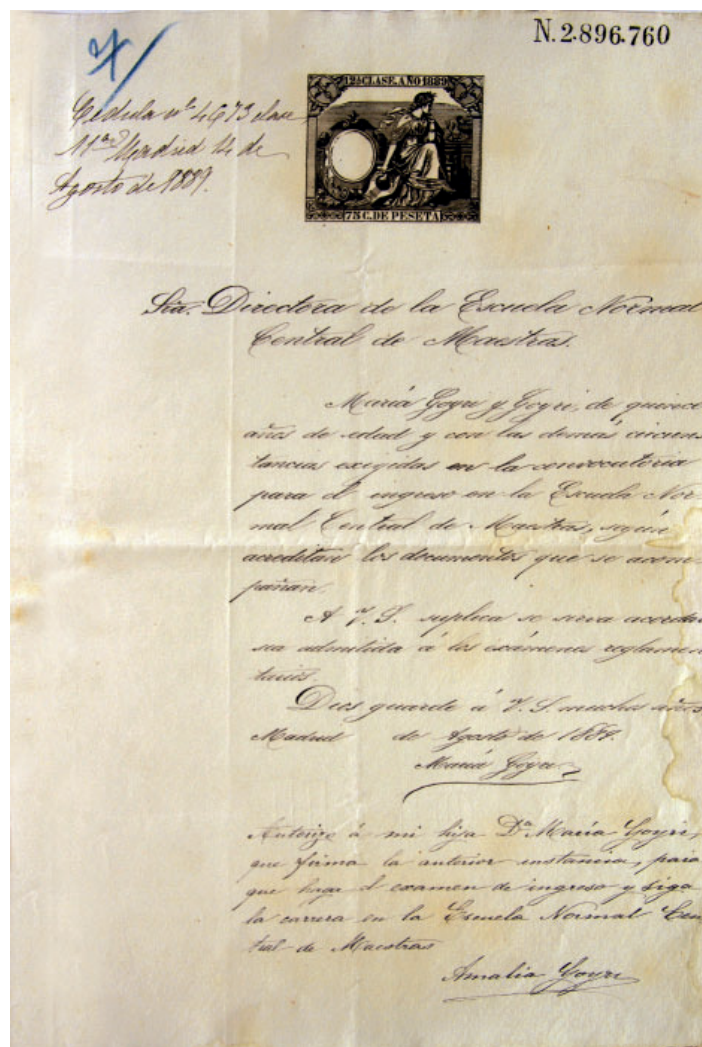 N. 2.896.760
12ª CLASE. AÑO 1889
75 C. DE PESETA
Cédula nº 4673 clase
11ª Madrid 14 de
Agosto de 1889.
Sra. Directora de la Escuela Normal
Central de Maestras.
María Goyri y Goyri, de quince
años de edad y con las demás circuns
tancias exigidas en la convocatoria
para el ingreso en la Escuela Nor
mal Central de Maestras, según
acreditan los documentos que se acom
pañan.
A V. S. suplica se sirva acordar
sea admitida á los exámenes reglamen
tarios.
Dios guarde á V. S. muchos años
Madrid de Agosto de 1889.
María Goyri
Autorizo á mi hija Dª María Goyri,
que firma la anterior instancia, para
que haga el examen de ingreso y siga
la carrera en la Escuela Normal Cen
tral de Maestras
Amalia Goyri